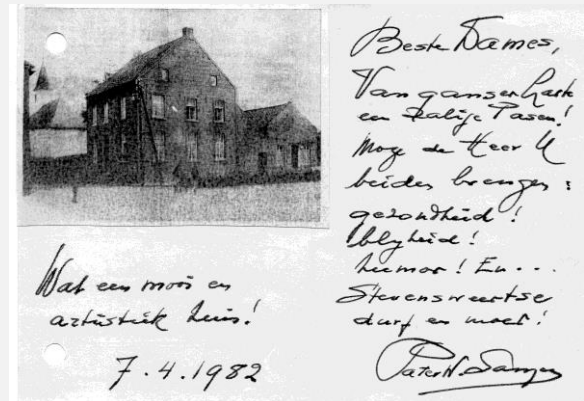 Beste Dames,
Van ganser harte
een zalige Pasen!
Moge de Heer U
beiden brengen:
gezondheid!
blyheid!
humor! En ...
Stevensweertse
durf en moed!
Pater
Wat een moois en
artistiek huis!
7.4.1982